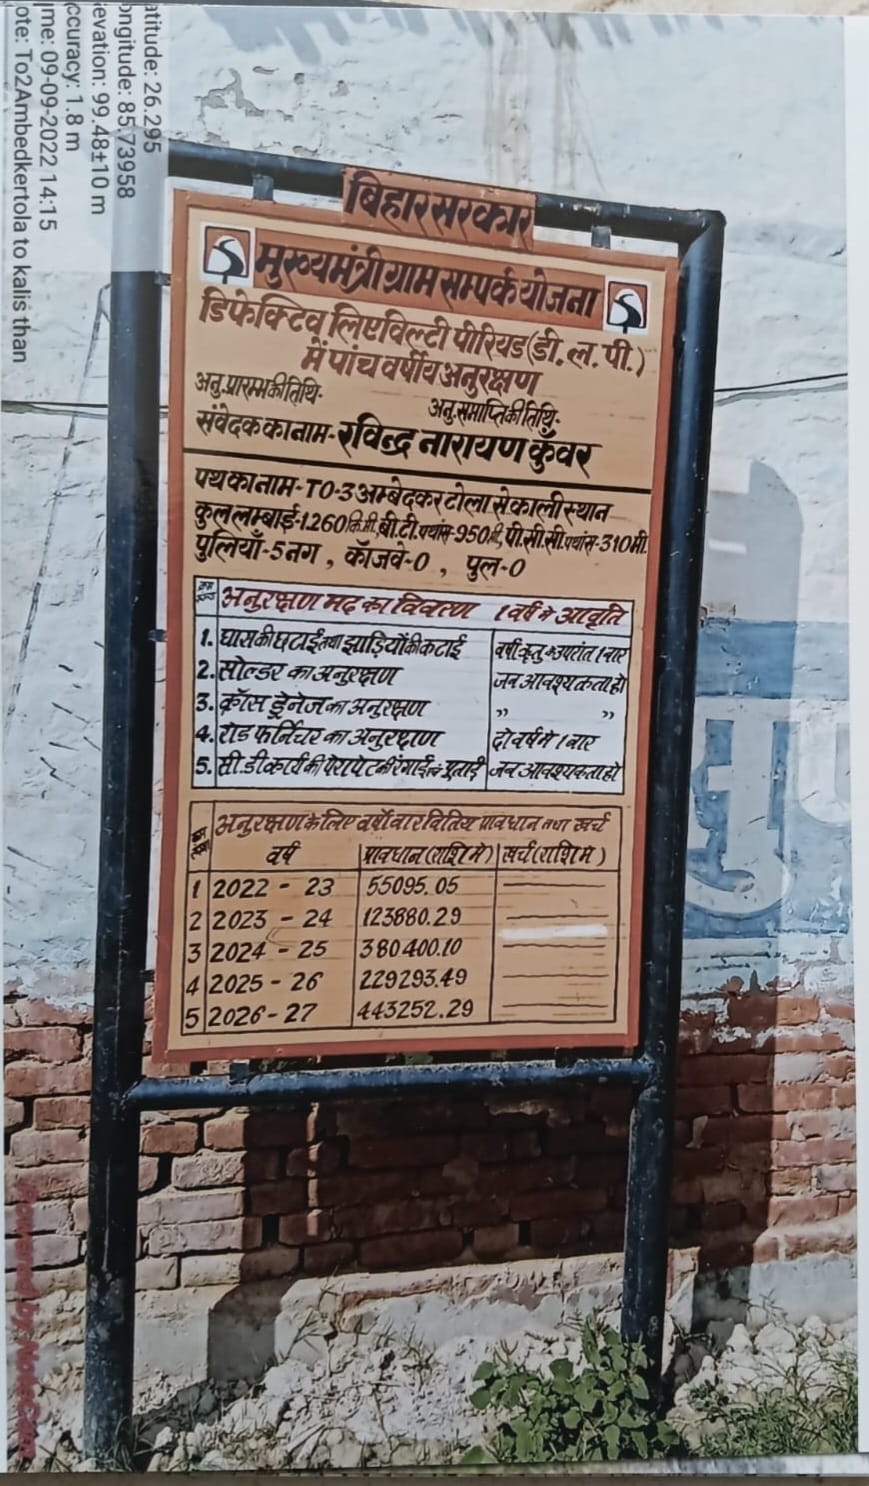 बिहार सरकार
मुख्यमंत्री ग्राम सम्पर्क योजना
डिफेक्टिव लिएविल्टी पीरियड (डी. ल. पी.)
में पांच वर्षीय अनुरक्षण
अनु. प्रारम्भ की तिथि-
अनु. समाप्ति की तिथि-
संवेदक का नाम- रविन्द्र नारायण कुँवर
पथ का नाम- TO-3 अम्बेदकर टोला से काली स्थान
कुल लम्बाई-1.260 कि.मी, बी.टी. पथांस-950 मी, पी.सी.सी. पथांस-310 मी.
पुलियाँ-5 नग, कॅाजवे-0, पुल-0
अनुरक्षण मद का विवरण 1 वर्ष मे आवृति
1. घास की छटाई तथा झाड़ियों की कटाई वर्षा ऋतु के उपरांत 1 बार
2. सोल्डर का अनुरक्षण जब आवश्यकता हो
3. क्रॉस ड्रेनेज का अनुरक्षण ,, ,,
4. रोड फर्निचर का अनुरक्षण दो वर्ष मे 1 बार
5. सी.डी. कार्य की पेरापेट की रंगाई एवं पुताई जब आवश्यकता हो
अनुरक्षण के लिए वर्षो वार वितिय प्रावधान तथा खर्च
वर्ष प्रावधान (राशि मे) खर्च (राशि मे)
1 2022 - 23 55095.05
2 2023 - 24 123880.29
3 2024 - 25 380400.10
4 2025 - 26 229293.49
5 2026 - 27 443252.29
atitude: 26.295
ongitude: 85.73958
levation: 99.48±10 m
ccuracy: 1.8 m
me: 09-09-2022 14:15
ote: To2Ambedkertola to kalis than
Powered by NoteCam